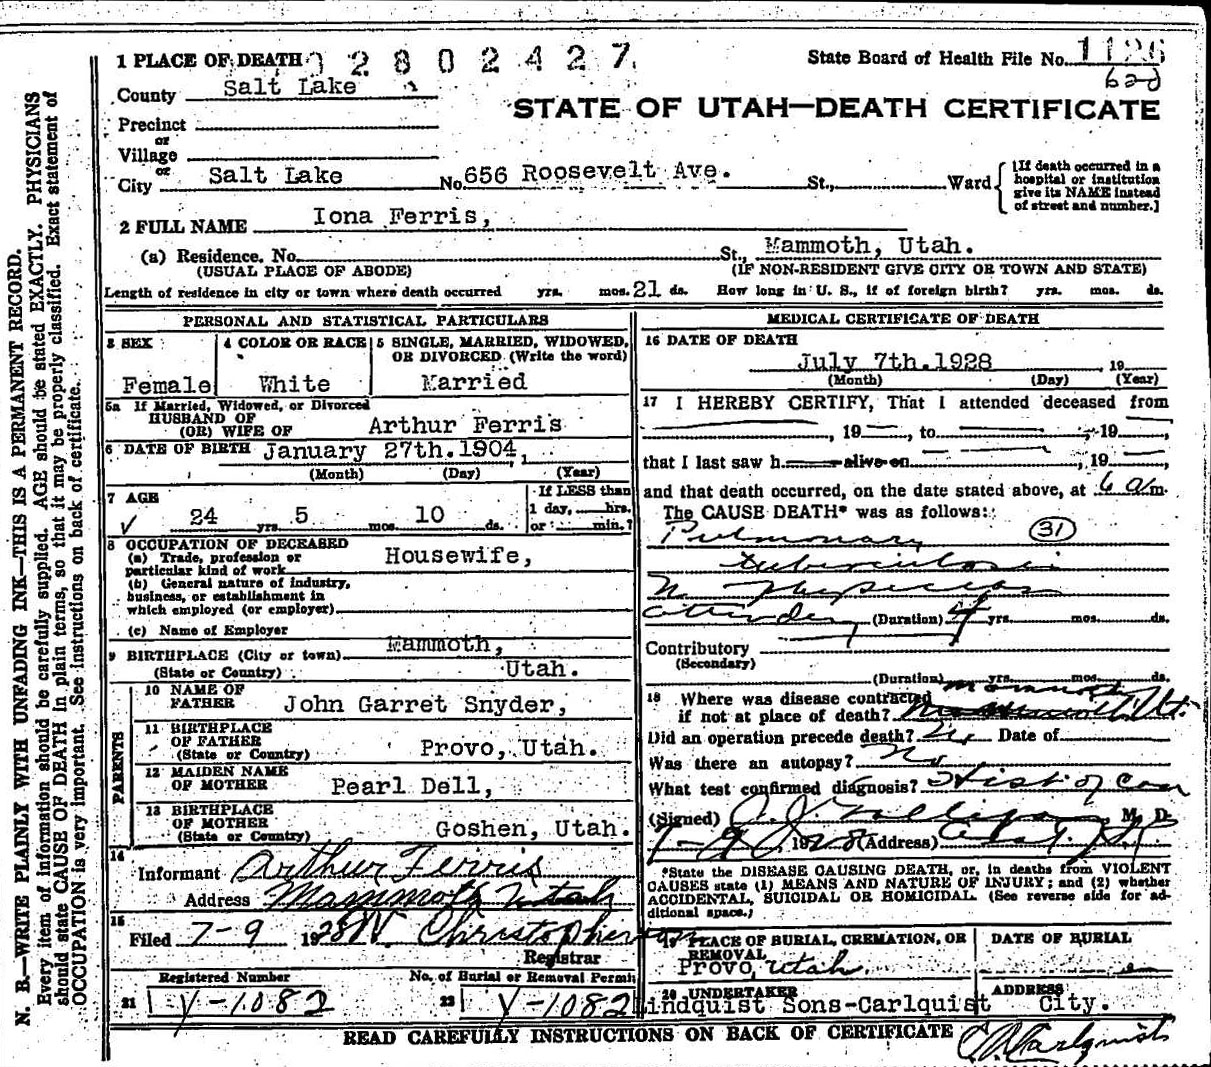 1 PLACE OF DEATH 02802427 State Board of Health File No. 1126
620
County Salt Lake
STATE OF UTAH—DEATH CERTIFICATE
Precinct
or
Village
or
City Salt Lake No. 656 Roosevelt Ave. St., Ward
[If death occurred in a
hospital or institution
give its NAME instead
of street and number.]
2 FULL NAME Iona Ferris,
(a) Residence. No. St., Mammoth, Utah.
(USUAL PLACE OF ABODE) (IF NON-RESIDENT GIVE CITY OR TOWN AND STATE)
Length of residence in city or town where death occurred yrs. mos. 21 ds. How long in U. S., if of foreign birth? yrs. mos. ds.
PERSONAL AND STATISTICAL PARTICULARS
3 SEX 4 COLOR OR RACE 5 SINGLE, MARRIED, WIDOWED,
OR DIVORCED (Write the word)
Female White Married
5a If Married, Widowed, or Divorced
HUSBAND OF
(OR) WIFE OF Arthur Ferris
6 DATE OF BIRTH January 27th.1904,
(Month) (Day) (Year)
7 AGE If LESS than
1 day, hrs.
24 yrs. 5 mos. 10 ds. or min.?
8 OCCUPATION OF DECEASED
(a) Trade, profession or
particular kind of work Housewife,
(b) General nature of industry,
business, or establishment in
which employed (or employer)
(c) Name of Employer
9 BIRTHPLACE (City or town) Mammoth,
(State or Country) Utah.
PARENTS
10 NAME OF
FATHER John Garret Snyder,
11 BIRTHPLACE
OF FATHER
(State or Country) Provo, Utah.
12 MAIDEN NAME
OF MOTHER Pearl Dell,
13 BIRTHPLACE
OF MOTHER
(State or Country) Goshen, Utah.
14
Informant Arthur Ferris
Address Mammoth Utah
15
Filed 7-9 1928 W. Christopherson
Registrar
Registered Number No. of Burial or Removal Permit
21 V-1082 22 V-1082
MEDICAL CERTIFICATE OF DEATH
16 DATE OF DEATH
July 7th.1928 , 19
(Month) (Day) (Year)
17 I HEREBY CERTIFY, That I attended deceased from
, 19 , to , 19 ,
that I last saw h alive on , 19 ,
and that death occurred, on the date stated above, at 6 a m.
The CAUSE DEATH* was as follows:
Pulmonary 31
tuberculosis
No Physician
attending (Duration) 4 yrs. mos. ds.
Contributory
(Secondary)
(Duration) yrs. mos. ds.
18 Where was disease contracted Mammoth
if not at place of death? Ut.
Did an operation precede death? No Date of
Was there an autopsy? No
What test confirmed diagnosis? Hist of case
(Signed) M. D.
7-9 1928 (Address)
*State the DISEASE CAUSING DEATH, or, in deaths from VIOLENT
CAUSES state (1) MEANS AND NATURE OF INJURY; and (2) whether
ACCIDENTAL, SUICIDAL OR HOMICIDAL. (See reverse side for ad-
ditional space.)
19 PLACE OF BURIAL, CREMATION, OR DATE OF BURIAL
REMOVAL
Provo, Utah
20 UNDERTAKER ADDRESS
Lindquist Sons-Carlquist City.
READ CAREFULLY INSTRUCTIONS ON BACK OF CERTIFICATE
Carlquist
N. B.—WRITE PLAINLY WITH UNFADING INK—THIS IS A PERMANENT RECORD.
Every item of information should be carefully supplied. AGE should be stated EXACTLY. PHYSICIANS
should state CAUSE OF DEATH in plain terms, so that it may be properly classified. Exact statement of
OCCUPATION is very important. See instructions on back of certificate.